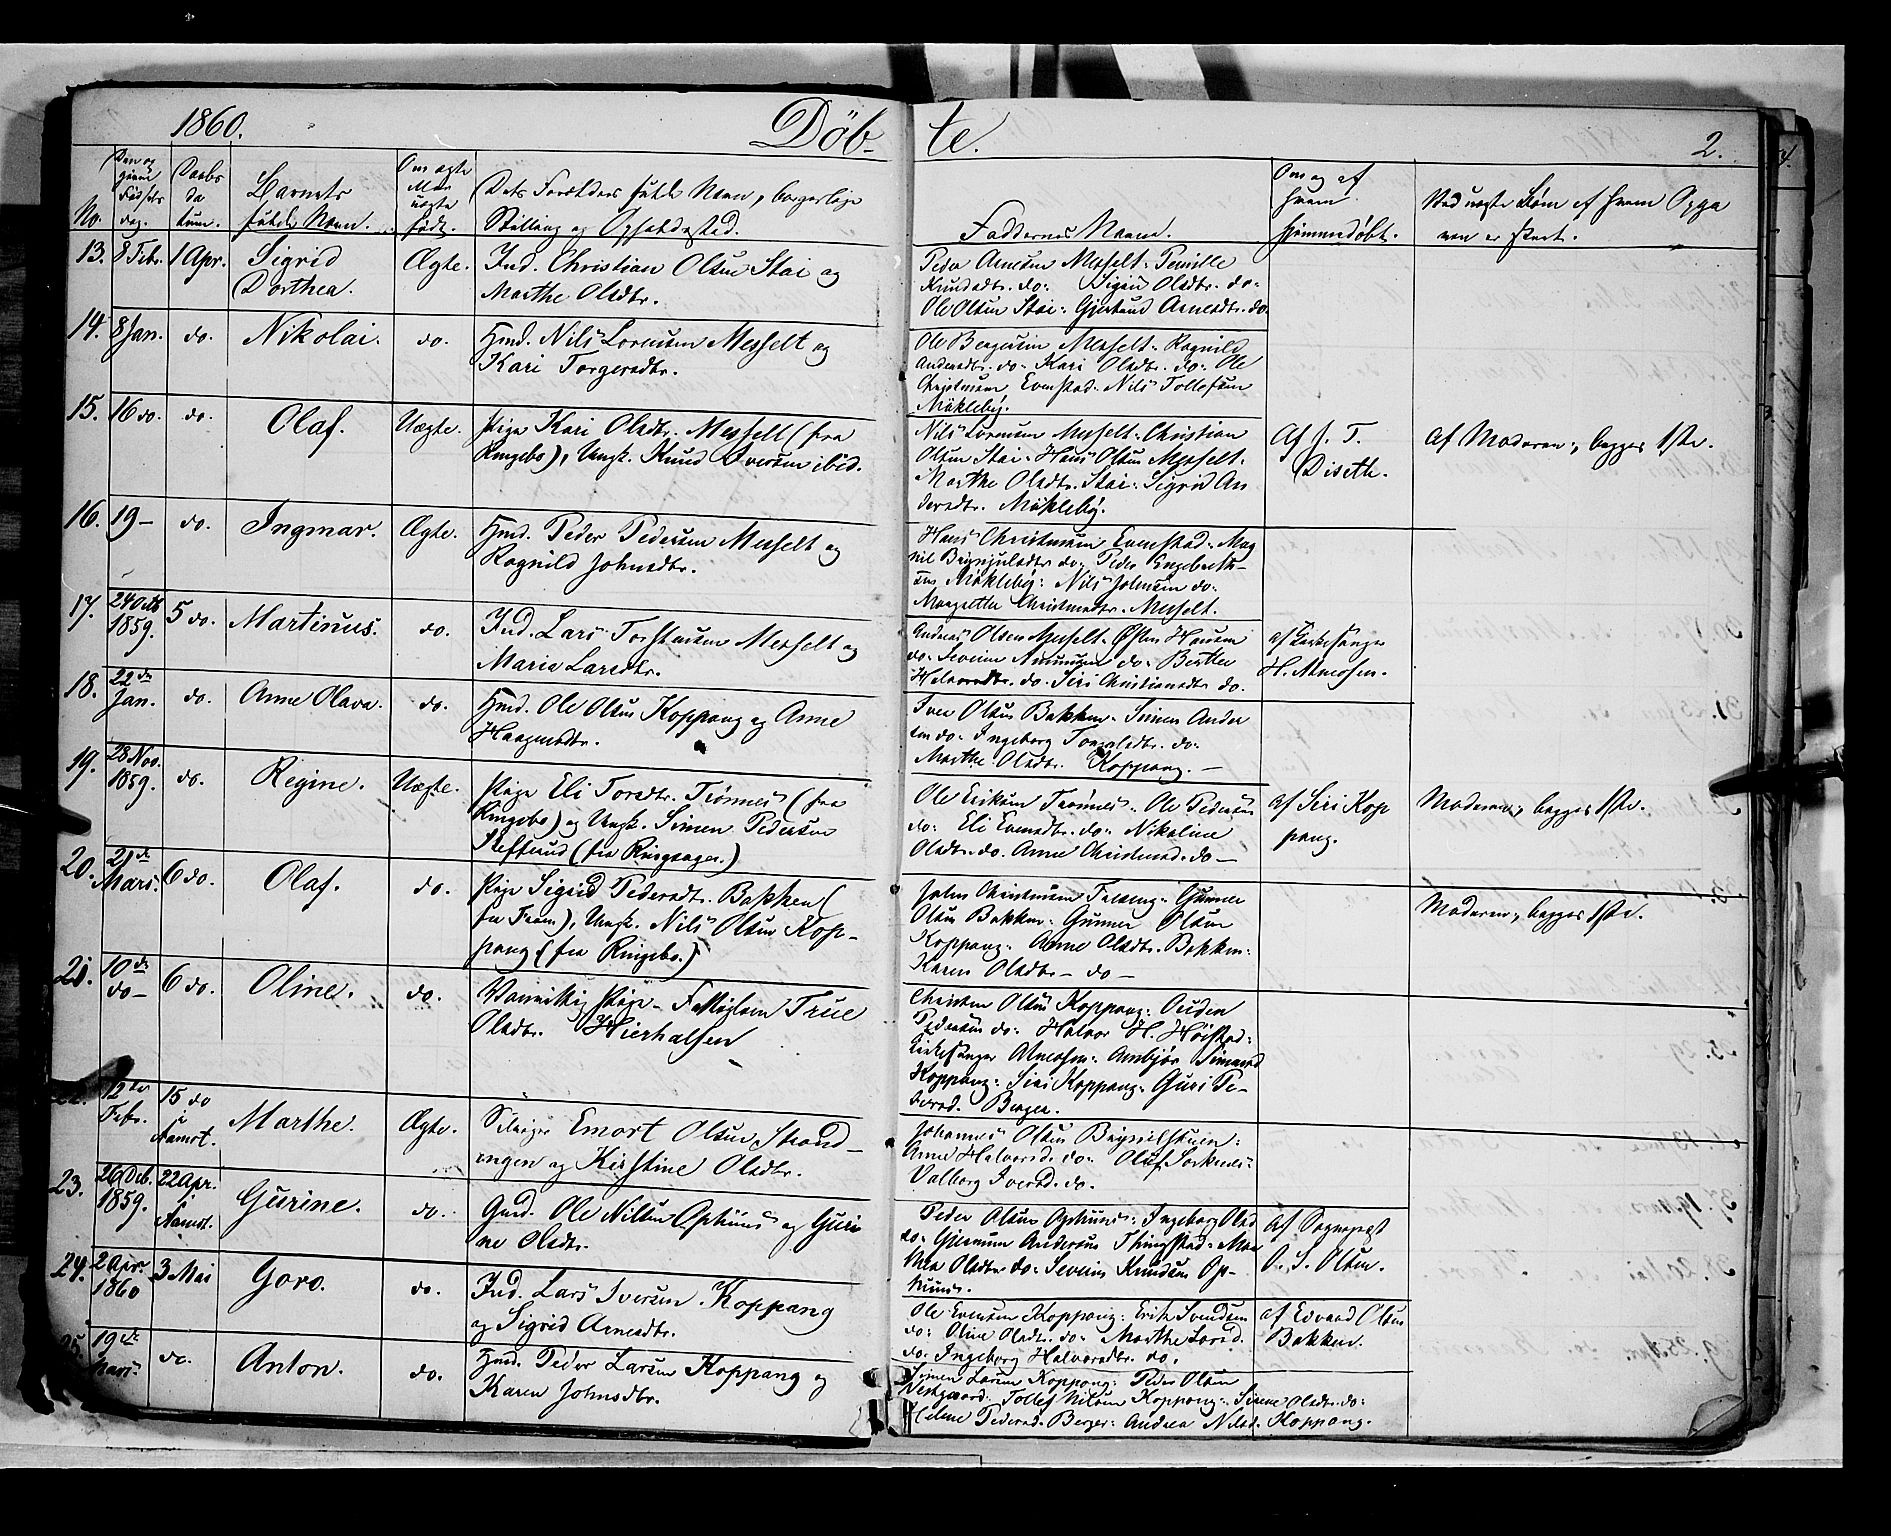 1860. Döb- te. 2.
No. Barnets fulde Navn. Om ægte eller uægte født. Dets Forældres fulde Navn, borgerlige Stilling og Opholdssted. Faddernes Navne. Om og af hvem hjemmedøbt. Ved uægte Børn af hvem Opga
ven er skeet.
13. 8 Febr. 1 Apr. Sigrid Ægte. Ind. Christian Olsen Stai og
Dorthea. Marthe Olsdtr.
Peder Arnesen Messelt: Pernille
Knudsdtr. do: Sigrid Olsdtr. do:
Ole Olsen Stai: Gjertrud Arnesdtr. do.
14. 8 Jan. do. Nikolai. do. Hmd. Nils Larensen Messelt og
Kari Torgersdtr.
Ole Bergersen Messelt: Ragnild
Andersdtr. do: Kari Olsdtr. do: Ole
Christensen Evenstad: Nils Tollefsen
Mökleby.
15. 16 do. do. Olaf. Uægte. Pige Kari Olsdtr. Messelt (fra
Ringebo), Ungk. Knud Iversen ibid.
Nils Larensen Messelt: Christian
Olsen Stai: Hans Olsen Messelt:
Marthe Olsdtr. Stai: Sigrid An
dersdtr. Mökleby.
Af J. T.
Diseth.
Af Moderen; begges 1ste.
16. 19 — do. Ingmar. Ægte. Hmd. Peder Pedersen Messelt og
Ragnild Johnsdtr.
Hans Christensen Evenstad: Mag
nil do: Peder Engebrets
sen Mökleby: Nils Johnsen do:
Margrethe Christensdtr. Messelt.
17. 24 Octb 1859. 5 do. Martinus. do. Ind. Lars Torstensen Messelt og
Maria Larsdtr.
Andreas Olsen Messelt: Østen Hansen
do: Severin Amundsen do: Berthe
Halvorsdtr. do: Siri Christiansdtr. do.
af Kirkesanger
H. Atneosen.
18. 22de Jan. do. Anne Olava. do. Hmd. Ole Olsen Koppang og Anne
Haagensdtr.
Iver Olsen Bakken: Simen Ander
sen do: Ingeborg do:
Marthe Olsdtr. Koppang. —
19. 28 Nov. 1859. do. Regine. Uægte. Pige Eli Torsdtr. Trönnes (fra
Ringebo) og Ungk. Simen Pedersen
(fra Ringsager.)
Ole Eriksen Trönnes: Ole Pedersen
do: Eli Evensdtr. do: Nikoline
Olsdtr. do. Anne Christensd. do —
af Siri Kop
pang.
Moderen; begges 1ste.
20. 21de Mars. 6 do. Olaf. do. Pige Sigrid Pedersdtr. Bakken (
fra Fron), Ungk. Nils Olsen Kop-
pang (fra Ringebo.)
John Christensen: Gunner
Olsen Bakken: Gunner Olsen
Koppang: Anne Olsdtr. Bakken:
Karen Olsdtr — do —
Moderen; begges 1ste.
21. 10de do — 6 do. Oline. do. Vanvittig Pige — True
Olsdtr. Hierhalsen
Christen Olsen Koppang: Ouden
Pedersen do: Halvor H. Höistad:
Kirkesanger Atneosen: Ambjör Simensd
Koppang: Siri Koppang: Guri Pe-
dersd. Berger.
12te Febr. 15 do i Aamot. Marthe. Ægte. Selveier Emort Olsen Strand-
engen og Kirstine Olsdtr.
Johannes Olsen:
Anne Halvorsd. do: Oluf Sorknes:
Valborg Iversd. do.
23. 26 Deb. 1859. 22 Apr. i Aamot. Gurine. do. Gmd. Ole Nilsen Ophuus og Guri
ne Olsdtr.
Peder Olsen Ophuus: Ingeborg Olsd
do: Gjermun Andersen Thingstad: Mar
thea Olsdtr do: Severin Knudsen Op-
huus.
Af Sognepræst
O. S. Olsen.
24. 2 Apr. 1860 3 Mai Goro. do. Ind. Lars Iversen Koppang
og Sigrid Arnesdtr.
Ole Evensen Koppang: Erik Svendsen
do: Oline Olsdtr. do: Marthe Larsd.
do: Ingeborg Halvorsdtr. do.
af Edvard Olsen
Bakken.
25. 19de Mars do. Anton. do. Hmd. Peder Larsen Koppang og
Karen Johnsdtr.
Simen Larsen Koppang: Peder Olsen
Vestgaard: Tollef Nilsen Koppang: Sirene Olsdtr. do:
Helene Pedersd. Berger: Andrea Nilsd. Koppang.